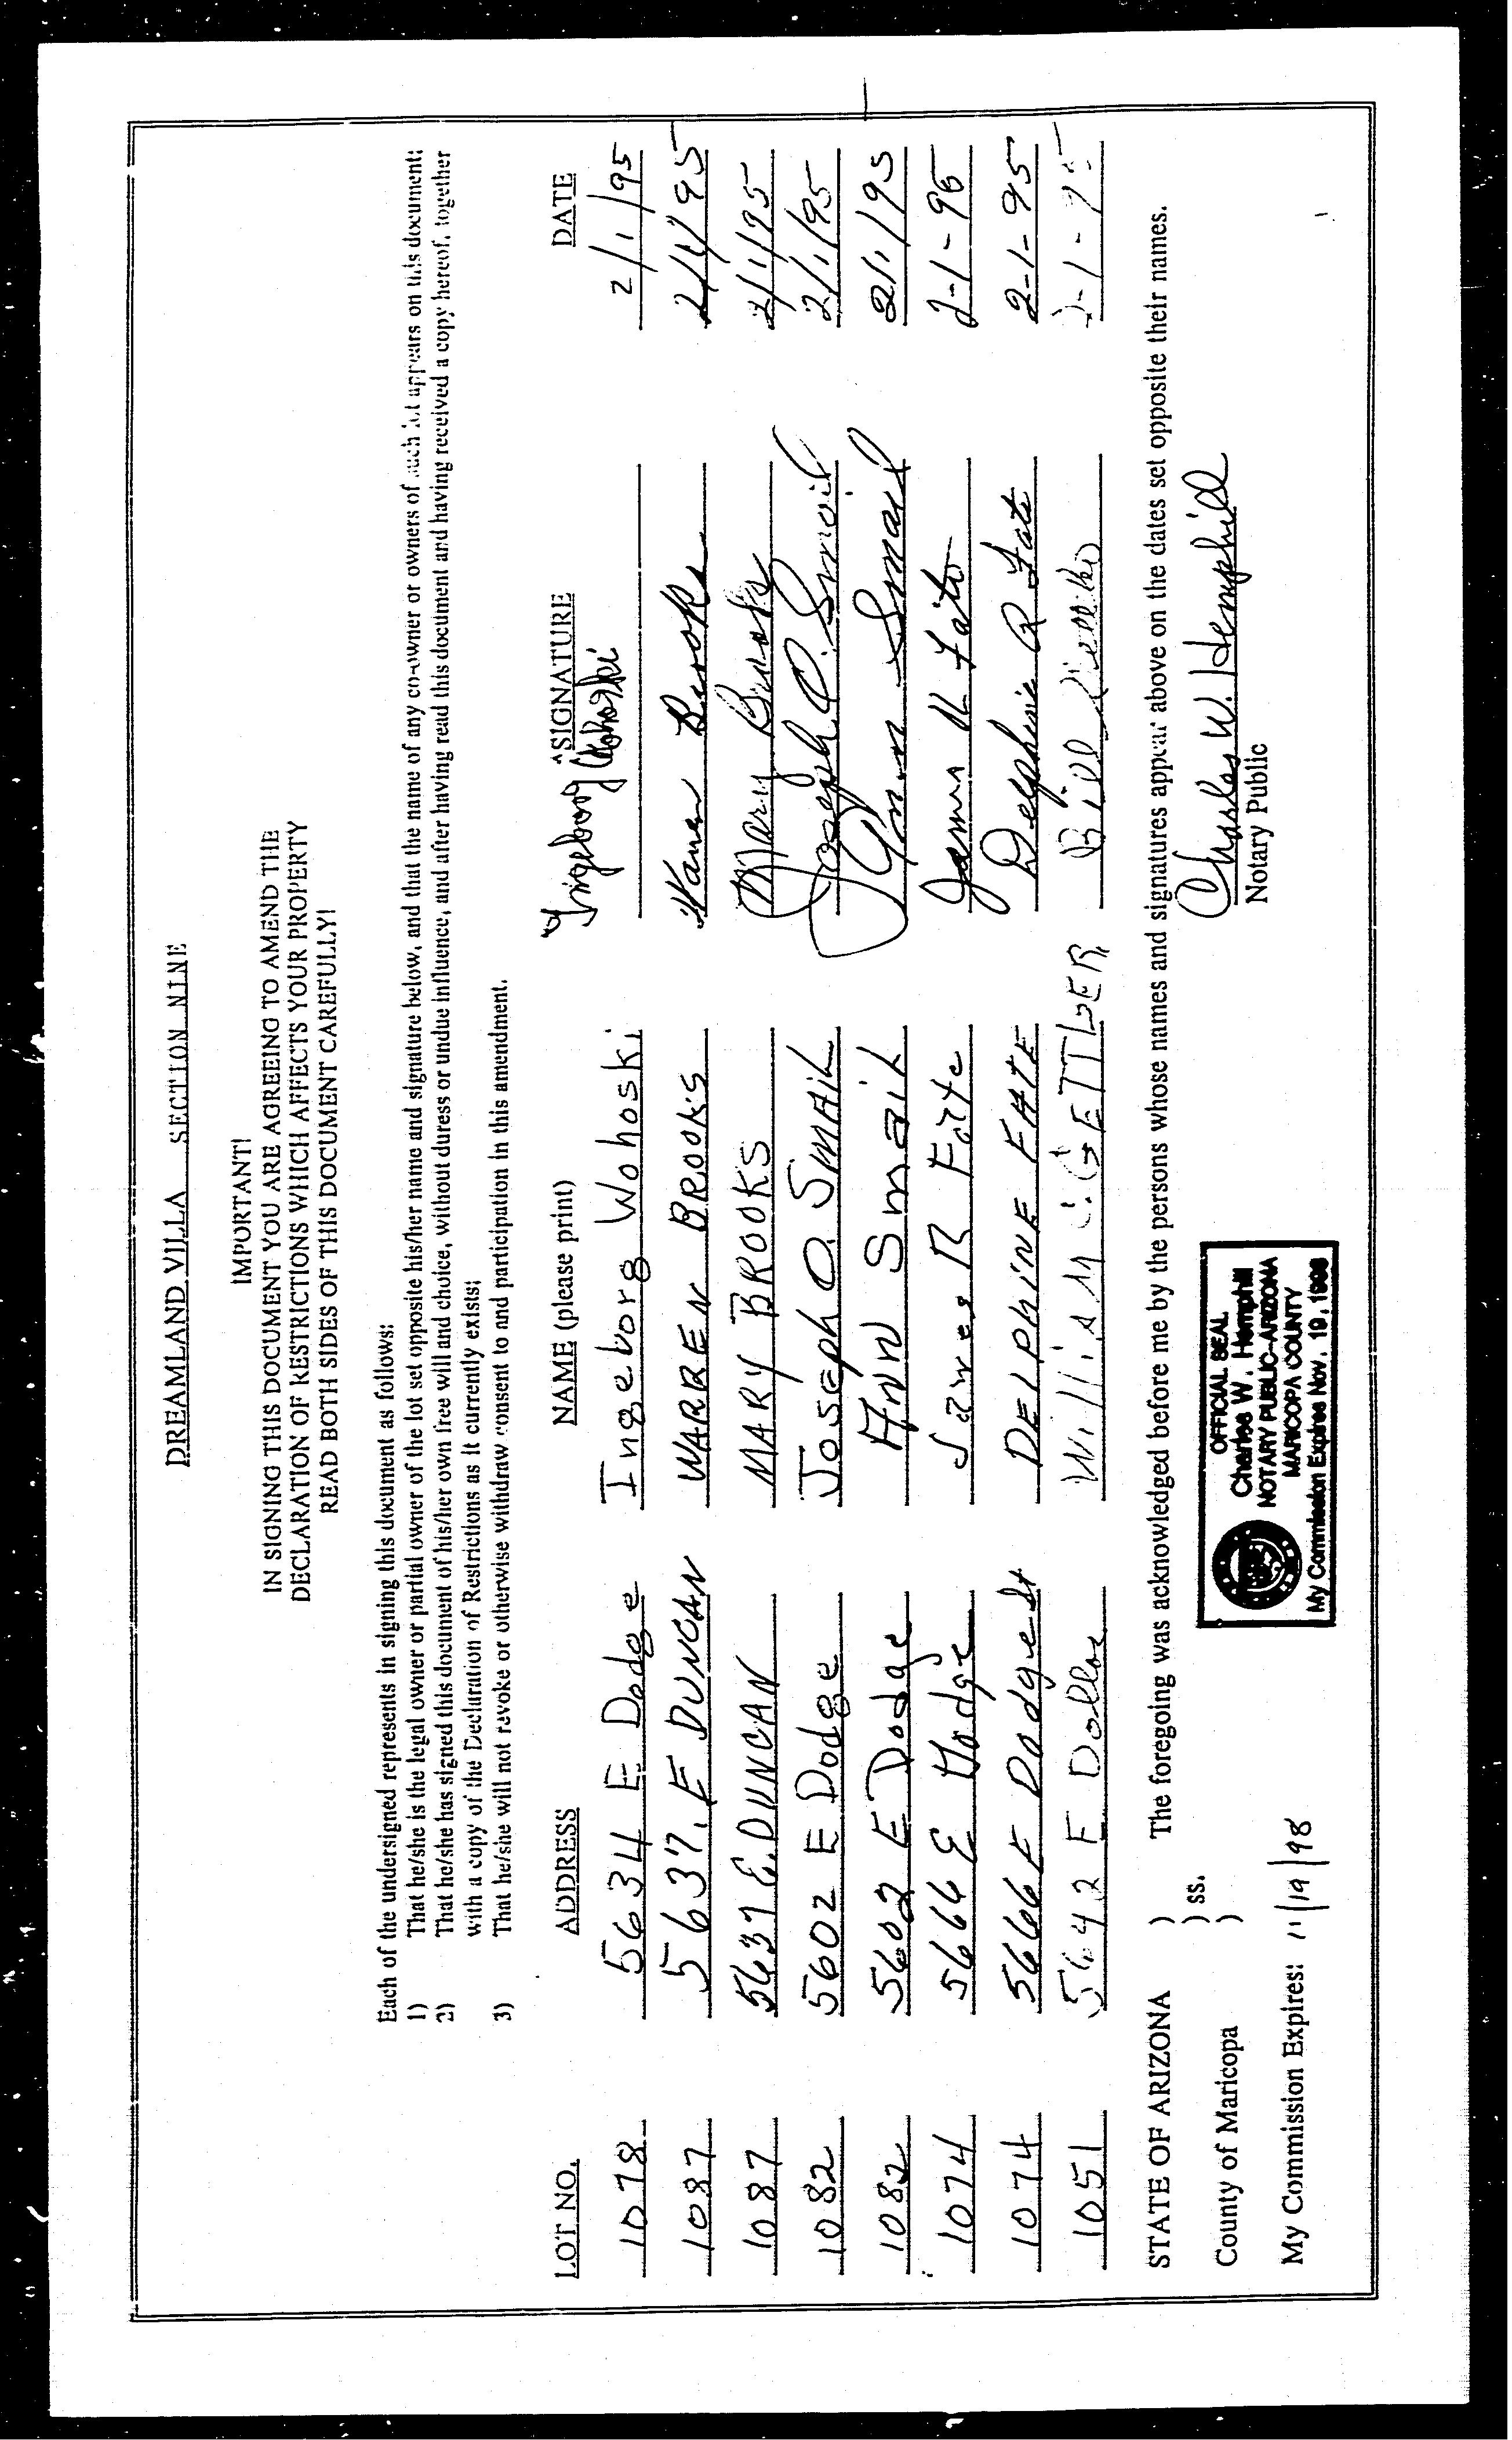 DREAMLAND VILLA SECTION NINE
IMPORTANT!
IN SIGNING THIS DOCUMENT YOU ARE AGREEING TO AMEND THE
DECLARATION OF RESTRICTIONS WHICH AFFECTS YOUR PROPERTY
READ BOTH SIDES OF THIS DOCUMENT CAREFULLY!
Each of the undersigned represents in signing this document as follows:
1) That he/she is the legal owner or partial owner of the lot set opposite his/her name and signature below, and that the name of any co-owner or owners of such lot appears on this document;
2) That he/she has signed this document of his/her own free will and choice, without duress or undue influence, and after having read this document and having received a copy hereof, together
with a copy of the Declaration of Restrictions as it currently exists;
3) That he/she will not revoke or otherwise withdraw consent to and participation in this amendment.
LOT NO. ADDRESS NAME (please print) SIGNATURE DATE
1078 5634 E Dodge Ingeborg Wohoski Ingeborg Wohoski 2/1/95
1087 5637. E DUNCAN WARREN BROOKS Warren Brooks 2/1/95
1087 5637 E. DUNCAN MARY BROOKS Mary Brooks 2/1/95
1082 5602 E Dodge Joseph O. SMAIL Joseph O. Smail 2/1/95
1082 5602 E Dodge ANN Smail Ann Smail 2/1/95
1074 5666 E Dodge James R Fate James R Fate 2-1-95
1074 5666 E Dodge St DELPHINE FATE Delphine R Fate 2-1-95
1051 5642 E Dollar William GETTLER Bill 2-1-95
STATE OF ARIZONA ) The foregoing was acknowledged before me by the persons whose names and signatures appear above on the dates set opposite their names.
) ss.
County of Maricopa )
My Commission Expires: 11/19/98
OFFICIAL SEAL
Charles W. Hemphill
NOTARY PUBLIC-ARIZONA
MARICOPA COUNTY
My Commission Expires Nov. 19, 1998
Charles W. Hemphill
Notary Public